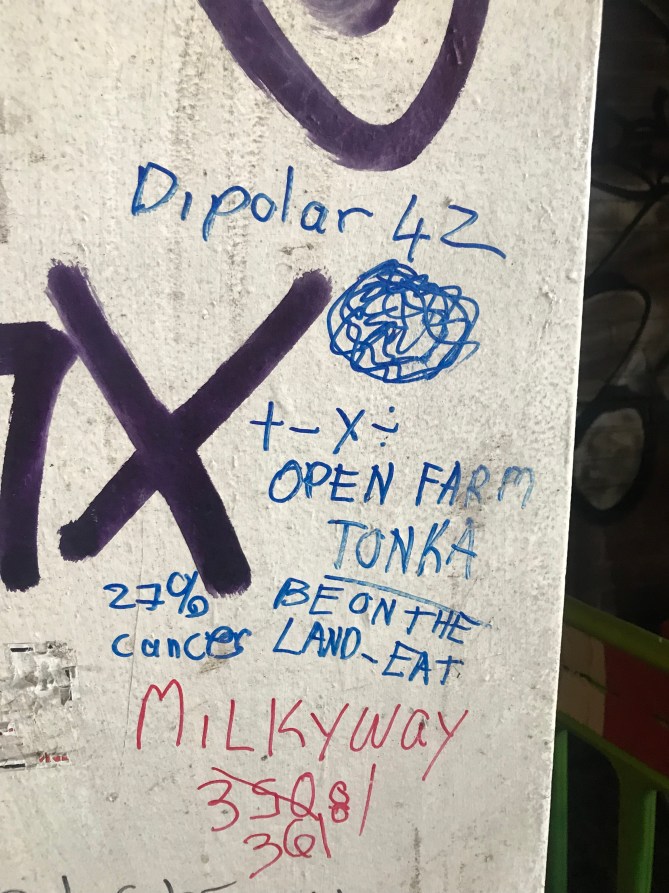 Dipolar 42
X
+ - x ÷
OPEN FARM
TONKA
27% cancer
BE ON THE
LAND - EAT
MILKYWAY
361